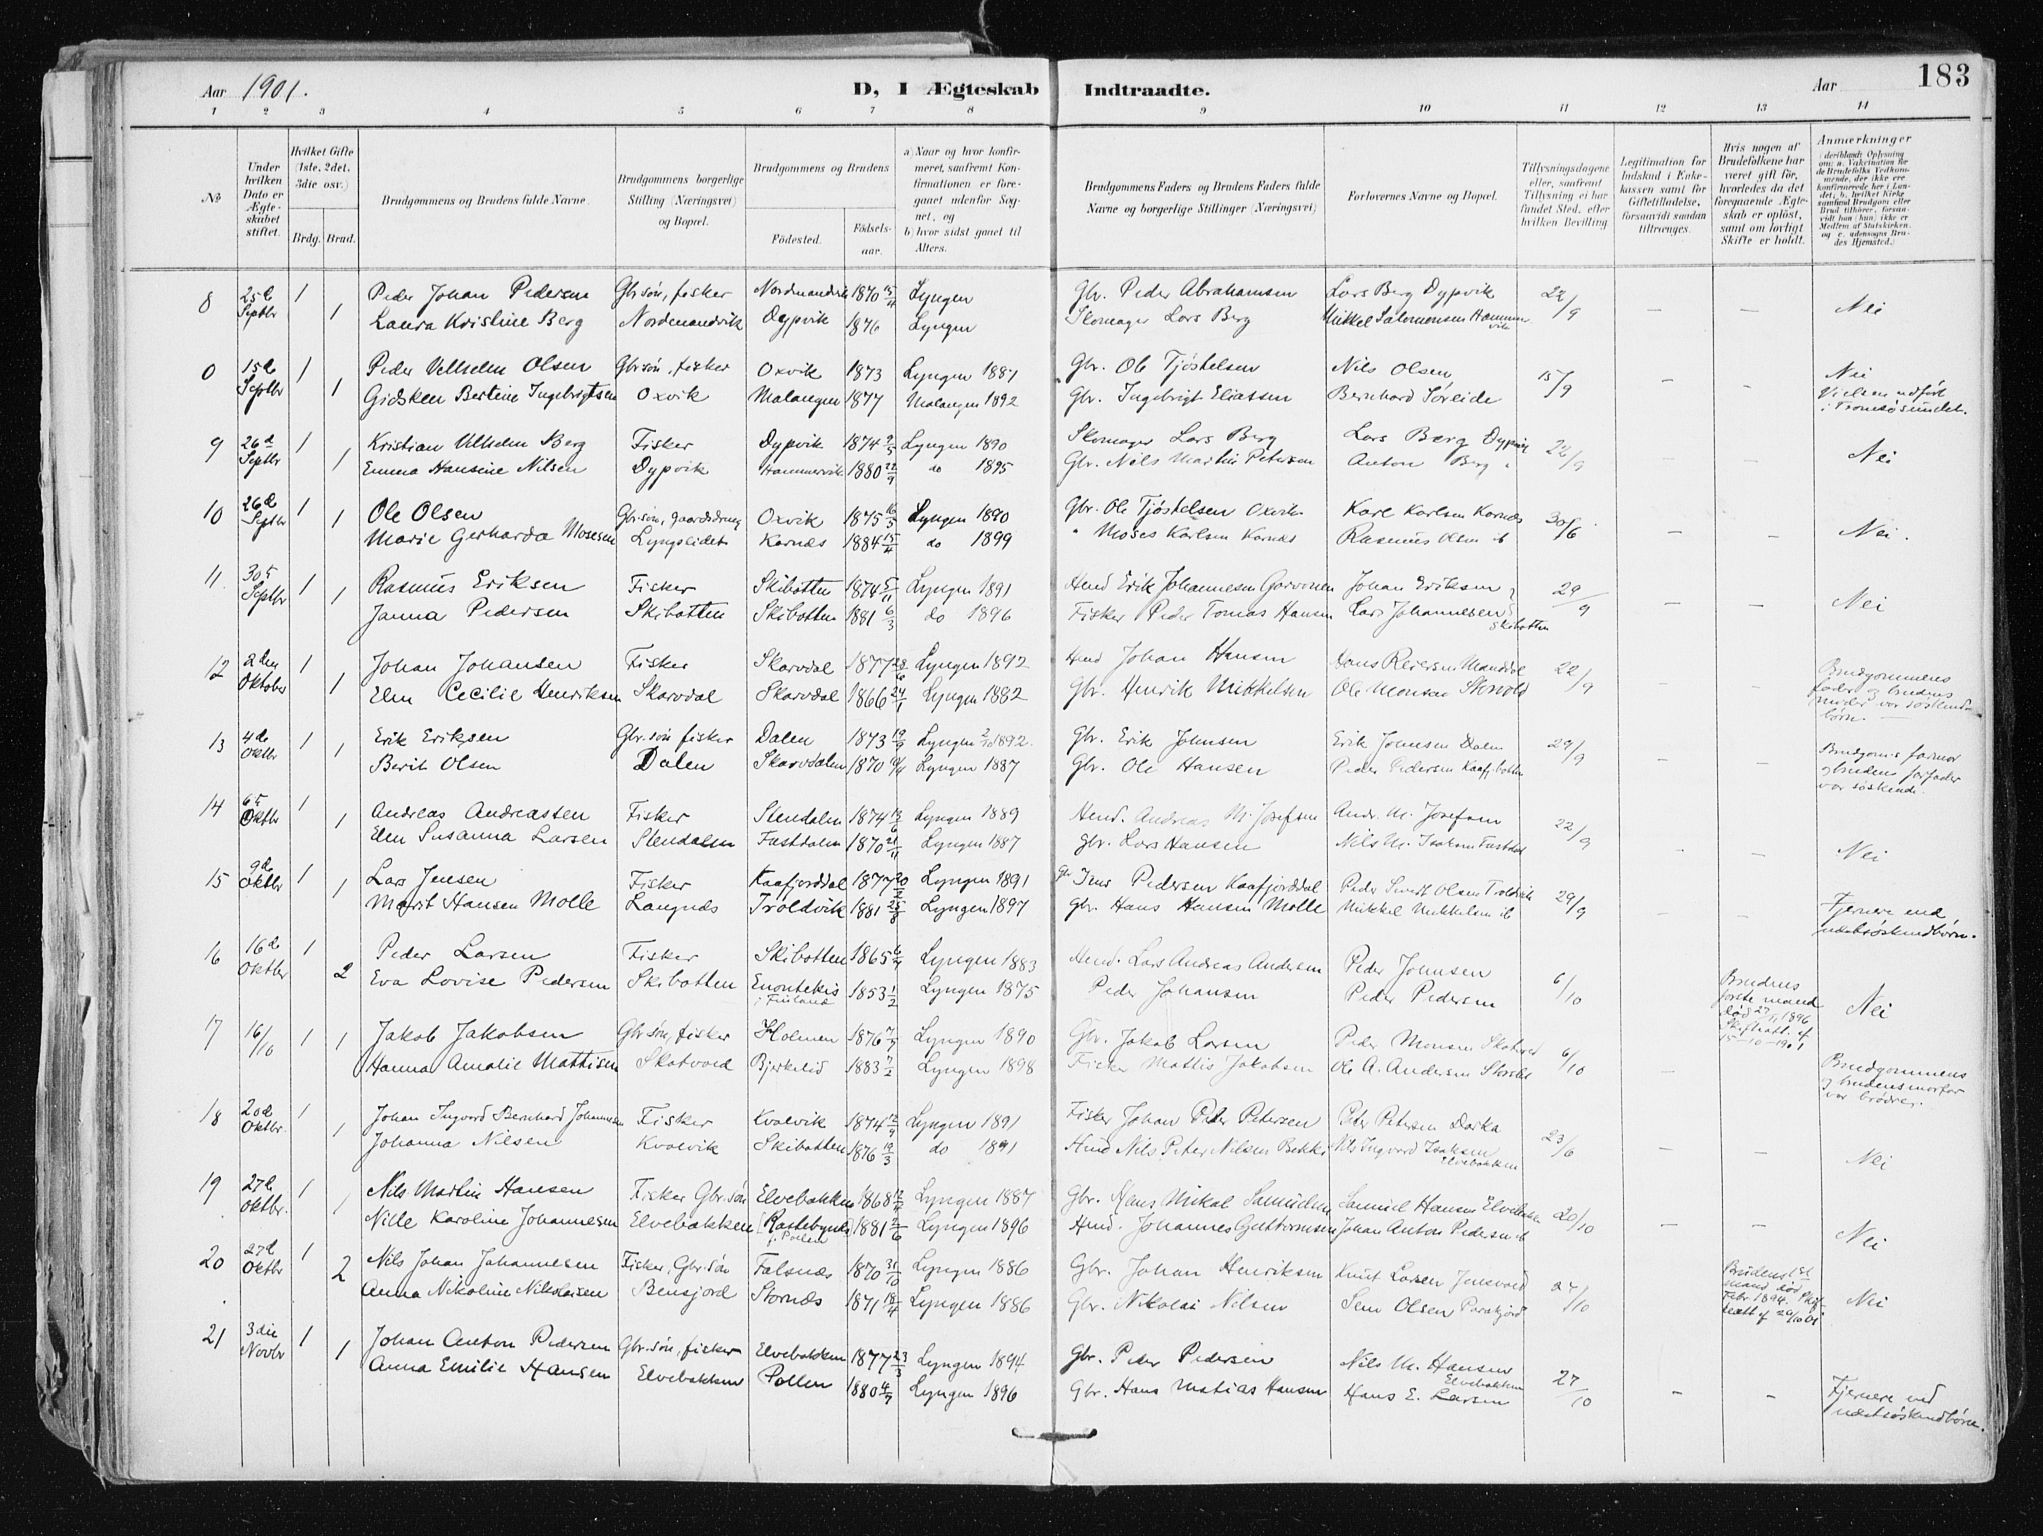 Aar 1901. D, I Ægteskab Indtraadte. Aar 183
1 2 3 4 5 6 7 8 9 10 11 12 13 14
No
Under hvilken Dato er Ægteskabet stiftet.
Hvilket Gifte (1ste, 2det, 3die osv.)
Brdg. Brud.
Brudgommens og Brudens fulde Navne.
Brudgommens borgerlige Stilling (Næringsvei) og Bopæl.
Brudgommens og Brudens
Fødested. Fødselsaar.
a) Naar og hvor konfirmeret, saafremt Konfirmationen er foregaaet udenfor Sognet, og
b) hvor sidst gaaet til Alters.
Brudgommens Faders og Brudens Faders fulde Navne og borgerlige Stillinger (Næringsvei)
Forlovernes Navne og Bopæl.
Tillysningsdagene eller, saafremt Tillysning ei har fundet Sted, efter hvilken Bevilling
Legitimation for Indskud i Enkekassen samt for Giftetilladelse, forsaavidt saadan tiltrænges.
Hvis nogen af Brudefolkene har været gift før, hvorledes da det foregaaende Ægteskab er opløst, samt om lovligt Skifte er holdt.
Anmærkninger
8 25d Septbr 1 Peder Johan Pedersen Gbr.søn, fisker Nordmandvik 1870 15/4 Lyngen Gbr. Peder Abrahamsen Lars Berg Dypvik 22/9 – – Nei
1 Laura Kristine Berg Nordmandvik Dypvik 1876 Lyngen Skomager Lars Berg Mikkel Salomonsen Hammervik
0 15d Septbr 1 Peder Vilhelm Olsen Gbrsøn, fisker Oxvik 1873 Lyngen 1881 Gbr. Ole Tjöstelsen Nils Olsen 15/9 – – Nei
1 Gidsken Bertine Ingebrigtsen Oxvik Malangen 1877 Malangen 1892 Gbr. Ingebrigt Eliassen Bernhard Søreide Vielsen udført i Tromsøsundet.
9 26d Septbr 1 Kristian Vilhelm Berg Fisker Dypvik 1874 9/5 Lyngen 1890 Skomager Lars Berg Lars Berg Dypvig 22/9 – – Nei
1 Emma Hansine Nilsen Dypvik Hammervik 1880 22/9 do 1895 Gbr. Nils Martin Petersen Anton Berg "
10 26d Septbr 1 Ole Olsen Gbr.søn, gaardsdreng Oxvik 1875 16/3 Lyngen 1890 Gbr. Ole Tjöstelsen Oxvik Karl Karlsen Kornæs 30/6 – – Nei.
1 Marie Gerharda Mosesen Lyngseidet Kornæs 1884 15/4 do 1899 " Moses Karlsen Kornæs Rasmus Olsen ib
11. 30te Septbr 1 Rasmus Eriksen Fisker Skibotten 1874 5/11 Lyngen 1891 Hmd Erik Johannesen Johan Eriksen 29/9 – – Nei
1 Janna Pedersen Skibotten Skibotten 1881 6/3 do 1896 Fisker Peder Tomas Hansen Lars Johannesen Skibotten
12 2den Oktober 1 Johan Johansen Fisker Skarvdal 1877 28/6 Lyngen 1892 Hmd Johan Hansen Hans Reiersen Manddal 22/9 – – Brudgommens fader og brudens moder var søskendebørn.
1 Elen Cecilie Henriksen Skarvdal Skarvdal 1866 24/1 Lyngen 1882 Gbr. Henrik Mikkelsen Ole Monsen
13 4de Oktbr 1 Erik Eriksen Gbr.søn fisker Dalen 1873 19/9 Lyngen 1892. Gbr. Erik Johnsen Erik Johnsen Dalen 29/9 – – Brudgoms farmor og brudens farfader var søskende.
1 Berit Olsen Dalen Skarvdalen 1870 Lyngen 1887 Gbr. Ole Hansen Peder Pedersen Kaafjbotten
14 6te Oktbr 1 Andreas Andreassen Fisker Stendalen 1874 13/6 Lyngen 1889 Hmd. Andreas M. Josefsen Andr. M. Josefsen 22/9 – – Nei
1 Elen Susanna Larsen Stendalen Fastdalen 1870 21/11 Lyngen 1887 Gbr. Lars Hansen Nils M. Isaksen Fastdal
15 9de Oktbr 1 Lars Jensen Fisker Kaafjorddal 1877 20/2 Lyngen 1891 Gbr Jens Pedersen Kaafjorddal Peder Olsen Troldvik 29/9 – – Fjernere end næstsøskendbørn.
1 Marit Hansen Molle Langnæs Troldvik 1881 25/8 Lyngen 1897 Gbr. Hans Hansen Molle Mikkel Mikkelsen ib
16 16d Oktbr 1 Peder Larsen Fisker Skibotten 1865 6/9 Lyngen 1883 Hmd. Lars Andreas Andersen Peder Johnsen 6/10 Brudens første mand død 27/11 1896 Skifteatt. af 15-10-1901 Nei
2 Eva Lovise Pedersen Skibotten Enontekis i Finland 1853 1/2 Lyngen 1875 Peder Johansen Peder Pedersen
17 16/10 1 1 Jakob Jakobsen Gbr.søn, fisker Holmen 1876 7/7 Lyngen 1890 Gbr. Jakob Larsen Peder Monsen 6/10 – Brudgommens og brudens morfar var brødre.
Hanna Amalie Mattisen Skatvold Bjerkelid 1883 7/2 Lyngen 1898 Fisker Mattis Jakobsen Ole A. Andersen
18 20d Oktbr. 1 Johan Ingvard Bernhard Johannesen Fisker Kvalvik 1874 12/9 Lyngen 1891 Fisker Johan Peter Petersen Peter Petersen Dorka 23/6 – – Nei
1 Johanna Nilsen Kvalvik Skibotten 1876 19/3 do 1891 Hmd Nils Peter Nilsen Bekki Nils Ingvard Isaksen Elvebakken
19 27d Oktbr. 1 Nils Martin Hansen Fisker Gbr.søn Elvebakken 1868 12/4 Lyngen 1887 Gbr. Hans Mikal Samuelsen Samuel Hansen Elvebakken 20/10 – – Nei
1 Nille Karoline Johannesen Elvebakken Rastebynes i Pollen 1881 2/6 Lyngen 1896 Hmd. Johannes Guttormsen Johan Anton Pedersen ib
20 27d Oktbr 1 Nils Johan Johannesen Fisker, Gbr.søn Falsnæs 1870 31/10 Lyngen 1886 Gbr. Johan Henriksen Knut Larsen 27/10 Brudens 1st mand død Febr 1894. Skifteatt. af 20/10 01 Nei
2 Anna Nikoline Nikolaisen Bensjord Stornæs 1871 18/4 Lyngen 1886 Gbr. Nikolai Nilsen Sem Olsen
21 3die Novbr 1 Johan Anton Pedersen Gbr.søn, fisker Elvebakken 1877 23/3 Lyngen 1894 Gbr. Peder Pedersen Nils M. Hansen Elvebakken 27/10 – – Fjernere end næstsøskendbørn.
1 Anna Emilie Hansen Elvebakken Pollen 1880 4/9 Lyngen 1896 Gbr. Hans Matias Hansen Hans E. Larsen